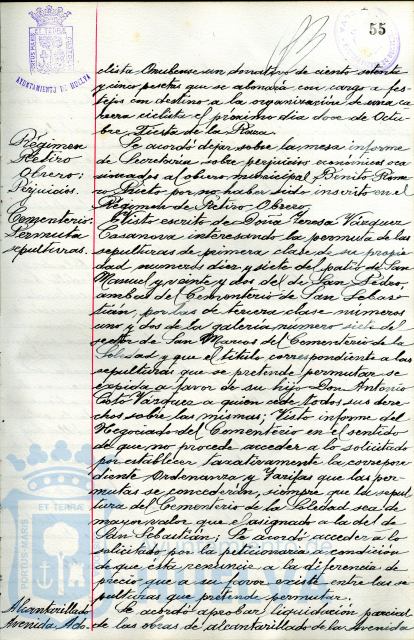 55
PORTUS MARIS ET TERRÆ
AYUNTAMIENTO DE HUELVA
clista Onubense un donativo de ciento setenta
y cinco pesetas que se abonará con cargo a fes-
tejos con destino a la organización de una ca-
rrera ciclista el próximo día doce de Octu-
bre, Fiesta de la Raza.
Régimen
Retiro
Obrero:
Perjuicios.
Se acordó dejar sobre la mesa informe
de Secretaría sobre perjuicios económicos oca-
sionados al obrero municipal Benito Rome-
ro Prieto por no haber sido inscrito en el
Régimen de Retiro Obrero.
Cementerio:
Permuta
sepulturas.
Visto escrito de Doña Teresa Vázquez
Casanova interesando la permuta de las
sepulturas de primera clase de su propie-
dad números diez y siete del patio de San
Manuel y veinte y dos del de San Pedro,
ambas del Cementerio de San Sebas-
tián, por las de tercera clase números
uno y dos de la galería número siete del
sector de San Marcos del Cementerio de la
Soledad y que el título correspondiente a las
sepulturas que se pretende permutar se
expida a favor de su hijo Don Antonio
Vázquez a quien cede todos sus dere-
chos sobre las mismas; Visto informe del
Negociado del Cementerio en el sentido
de que no procede acceder a lo solicitado
por establecer taxativamente la correspon-
diente Ordenanza y Tarifas que las per-
mutas se concederán, siempre que la sepul-
tura del Cementerio de la Soledad sea de
mayor valor que el asignado a la del de
San Sebastián; Se acordó acceder a lo
solicitado por la peticionaria a condición
de que ésta renuncie a la diferencia de
precio que a su favor existe entre las se-
pulturas que pretende permutar.
Alcantarillado
Avenida Ado-
Se acordó aprobar liquidación parcial
de las obras de alcantarillado de la Avenida
ET TERRA
PORTUS MARIS
Ayuntamiento de